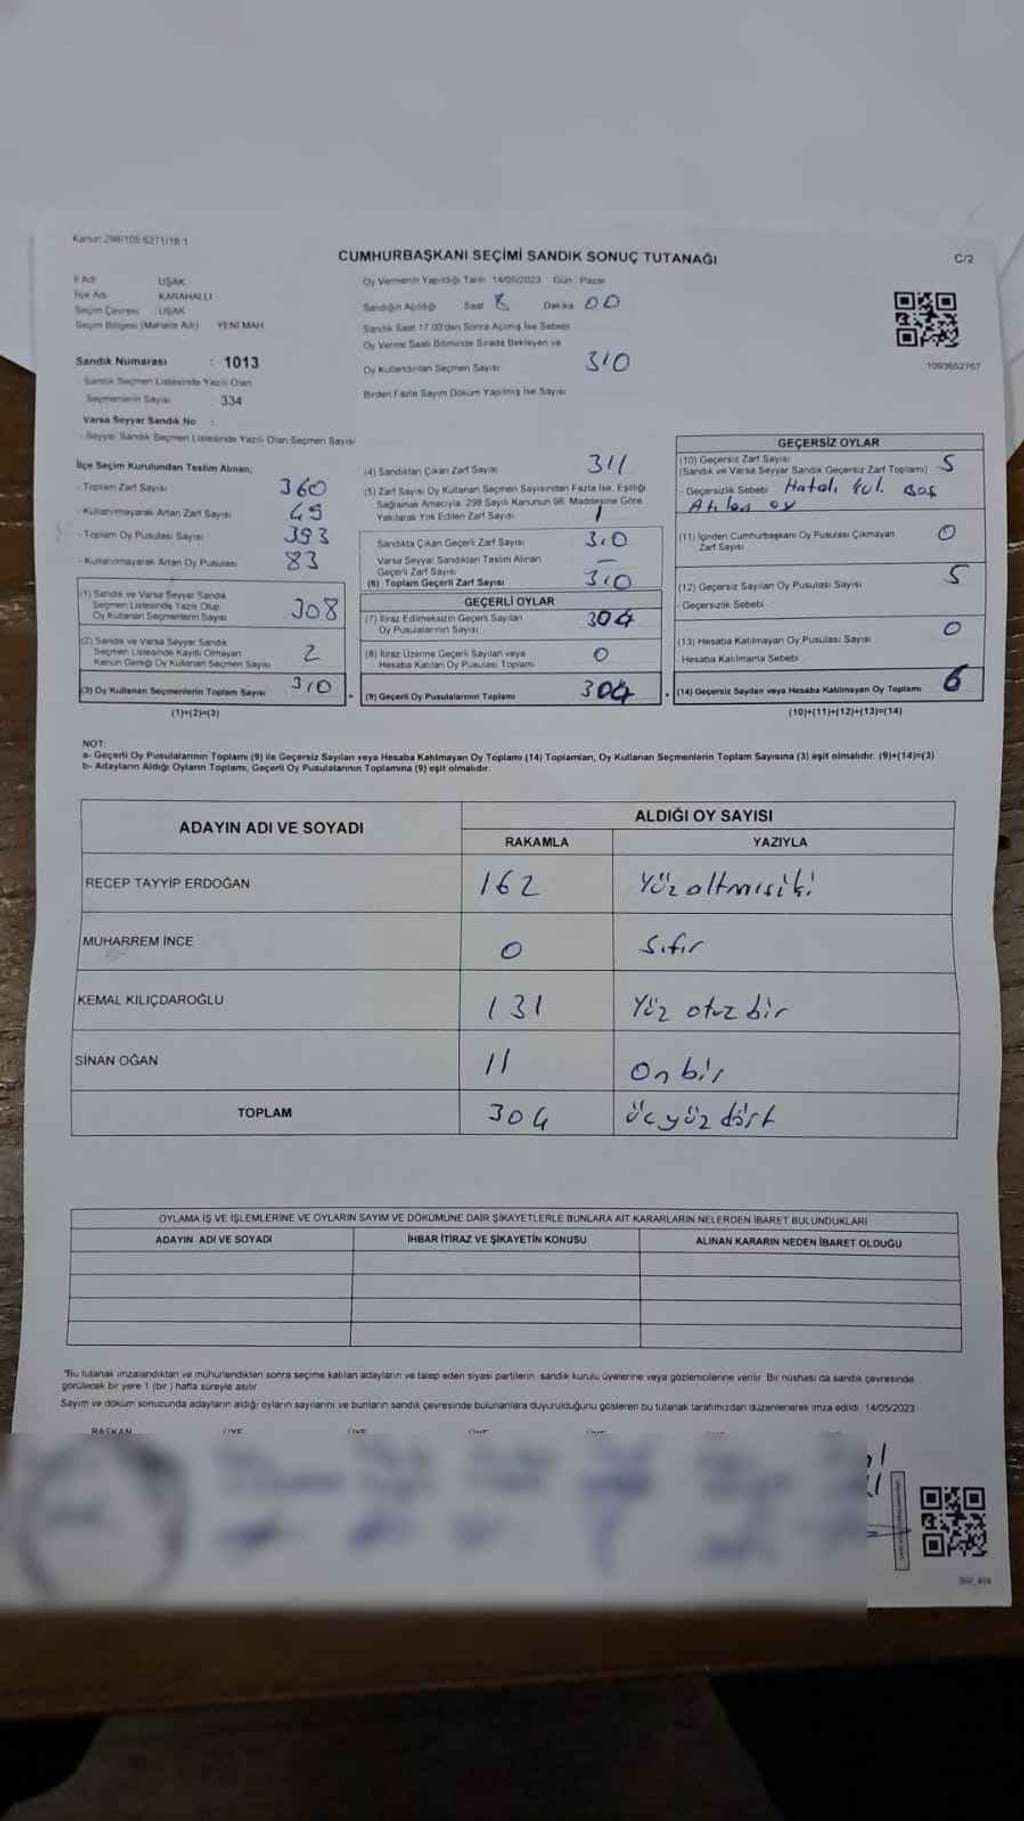 Kanun: 298/105 6271/18-1
CUMHURBAŞKANI SEÇİMİ SANDIK SONUÇ TUTANAĞI
C/2
İl Adı : UŞAK
İlçe Adı : KARAHALLI
Seçim Çevresi : UŞAK
Seçim Bölgesi (Mahalle Adı) YENİ MAH
Sandık Numarası : 1013
Sandık Seçmen Listesinde Yazılı Olan
Seçmenlerin Sayısı : 334
Varsa Seyyar Sandık No :
- Seyyar Sandık Seçmen Listesinde Yazılı Olan Seçmen Sayısı
Oy Vermenin Yapıldığı Tarih 14/05/2023 Gün : Pazar
Sandığın Açıldığı Saat 8 Dakika 00
Sandık Saat 17.00'den Sonra Açılmış İse Sebebi
Oy Verme Saati Bitiminde Sırada Bekleyen ve
Oy Kullandırılan Seçmen Sayısı 310
Birden Fazla Sayım Döküm Yapılmış İse Sayısı
1093652767
İlçe Seçim Kurulundan Teslim Alınan;
- Toplam Zarf Sayısı 360
- Kullanılmayarak Artan Zarf Sayısı 49
- Toplam Oy Pusulası Sayısı 393
- Kullanılmayarak Artan Oy Pusulası 83
(1) Sandık ve Varsa Seyyar Sandık
Seçmen Listesinde Yazılı Olup
Oy Kullanan Seçmenlerin Sayısı 308
(2) Sandık ve Varsa Seyyar Sandık
Seçmen Listesinde Kayıtlı Olmayan
Kanun Gereği Oy Kullanan Seçmen Sayısı 2
(3) Oy Kullanan Seçmenlerin Toplam Sayısı 310
(1)+(2)=(3)
(4) Sandıktan Çıkan Zarf Sayısı 311
(5) Zarf Sayısı Oy Kullanan Seçmen Sayısından Fazla İse, Eşitliği
Sağlamak Amacıyla 298 Sayılı Kanunun 98. Maddesine Göre
Yakılarak Yok Edilen Zarf Sayısı 1
Sandıkta Çıkan Geçerli Zarf Sayısı 310
Varsa Seyyar Sandıktan Teslim Alınan
Geçerli Zarf Sayısı —
(6) Toplam Geçerli Zarf Sayısı 310
GEÇERLİ OYLAR
(7) İtiraz Edilmeksizin Geçerli Sayılan
Oy Pusulalarının Sayısı 304
(8) İtiraz Üzerine Geçerli Sayılan veya
Hesaba Katılan Oy Pusulası Toplamı 0
(9) Geçerli Oy Pusulalarının Toplamı 304
GEÇERSİZ OYLAR
(10) Geçersiz Zarf Sayısı
(Sandık ve Varsa Seyyar Sandık Geçersiz Zarf Toplamı) 5
- Geçersizlik Sebebi Hatalı Kul. Boş
Atılan oy
(11) İçinden Cumhurbaşkanı Oy Pusulası Çıkmayan
Zarf Sayısı 0
(12) Geçersiz Sayılan Oy Pusulası Sayısı 5
- Geçersizlik Sebebi
(13) Hesaba Katılmayan Oy Pusulası Sayısı 0
- Hesaba Katılmama Sebebi
(14) Geçersiz Sayılan veya Hesaba Katılmayan Oy Toplamı 6
(10)+(11)+(12)+(13)=(14)
NOT:
a- Geçerli Oy Pusulalarının Toplamı (9) ile Geçersiz Sayılan veya Hesaba Katılmayan Oy Toplamı (14) Toplamları, Oy Kullanan Seçmenlerin Toplam Sayısına (3) eşit olmalıdır. (9)+(14)=(3)
b- Adayların Aldığı Oyların Toplamı, Geçerli Oy Pusulalarının Toplamına (9) eşit olmalıdır.
ADAYIN ADI VE SOYADI
ALDIĞI OY SAYISI
RAKAMLA YAZIYLA
RECEP TAYYİP ERDOĞAN 162 Yüz altmışiki
MUHARREM İNCE 0 Sıfır
KEMAL KILIÇDAROĞLU 131 Yüz otuz bir
SİNAN OĞAN 11 On bir
TOPLAM 304 üçyüz dört
OYLAMA İŞ VE İŞLEMLERİNE VE OYLARIN SAYIM VE DÖKÜMÜNE DAİR ŞİKAYETLERLE BUNLARA AİT KARARLARIN NELERDEN İBARET BULUNDUKLARI
ADAYIN ADI VE SOYADI İHBAR İTİRAZ VE ŞİKAYETİN KONUSU ALINAN KARARIN NEDEN İBARET OLDUĞU
"Bu tutanak imzalandıktan ve mühürlendikten sonra seçime katılan adayların ve talep eden siyasi partilerin sandık kurulu üyelerine veya gözlemcilerine verilir. Bir nüshası da sandık çevresinde
görülecek bir yere 1 (bir ) hafta süreyle asılır.
Sayım ve döküm sonucunda adayların aldığı oyların sayılarını ve bunların sandık çevresinde bulunanlara duyurulduğunu gösteren bu tutanak tarafımızdan düzenlenerek imza edildi. 14/05/2023
BAŞKAN ÜYE ÜYE ÜYE ÜYE ÜYE